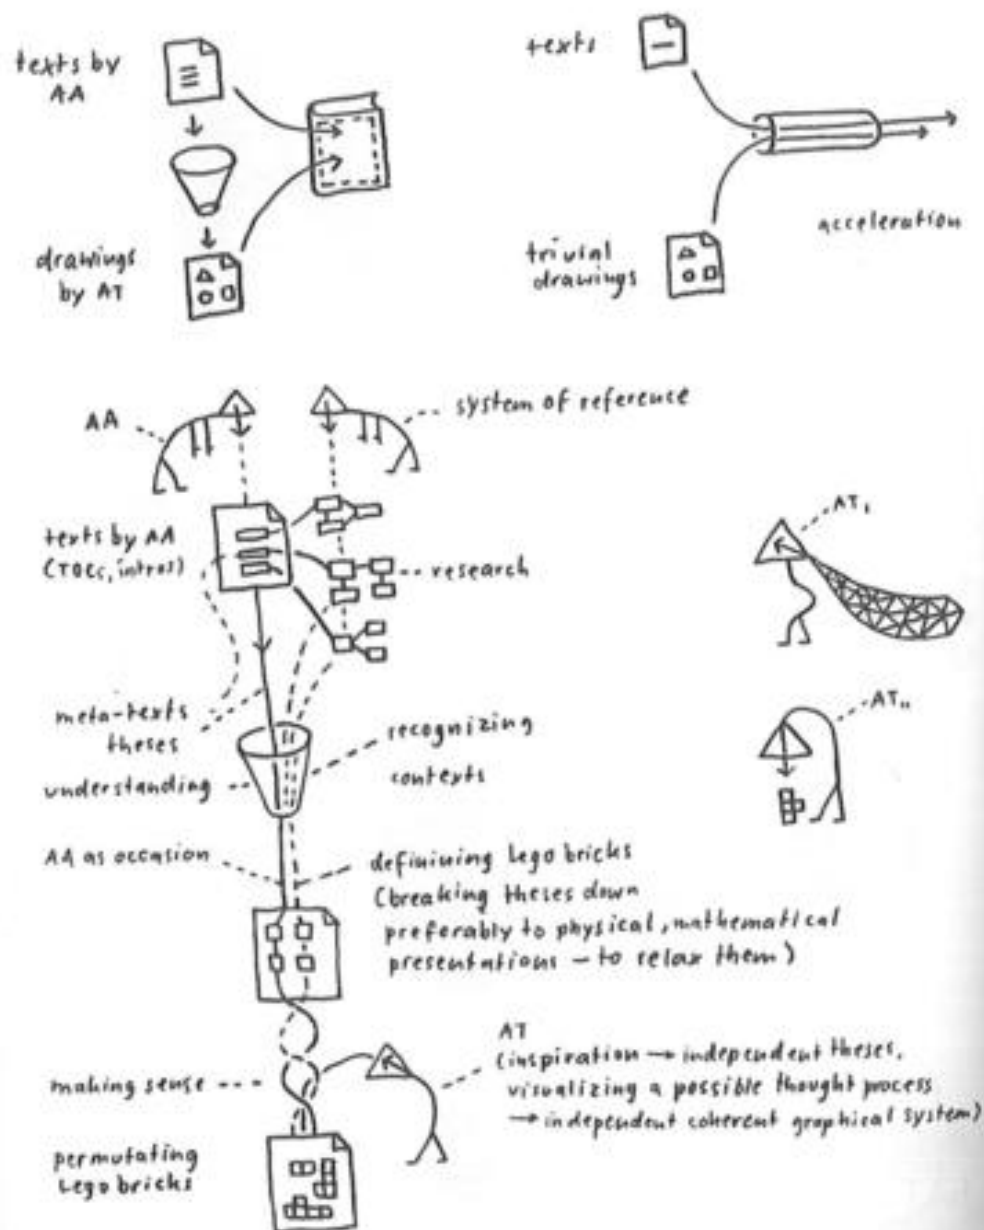 texts by
AA
drawings
by AT
texts
trivial
drawings
acceleration
AA
system of reference
texts by AA
(TOCs, intros)
research
meta-texts
theses
understanding
recognizing
contexts
AT₁
AT₁₁
AA as occasion
definining Lego bricks
(breaking theses down
preferably to physical, mathematical
presentations – to relax them)
making sense
AT
(inspiration → independent theses,
visualizing a possible thought process
→ independent coherent graphical system)
permutating
Lego bricks